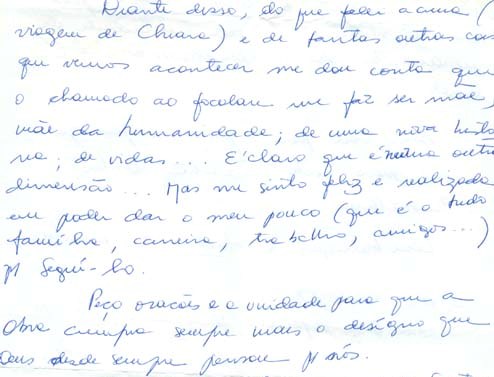 Diante disso, do que falei acima (
viagem de Chiara) e de tantas outras cois
que vemos acontecer me dou conta que
o chamado ao focolare me faz ser mãe,
mãe da humanidade; de uma nova histó
ria; de vidas... E' claro que é numa outra
dimensão... Mas me sinto feliz e realizada
em poder dar o meu pouco (que é o tudo
família, carreira, trabalho, amigos...)
p/ Segui-lo.
Peço orações e a unidade para que a
Obra cumpra sempre mais o desígnio que
Deus desde sempre pensou p/ nós.